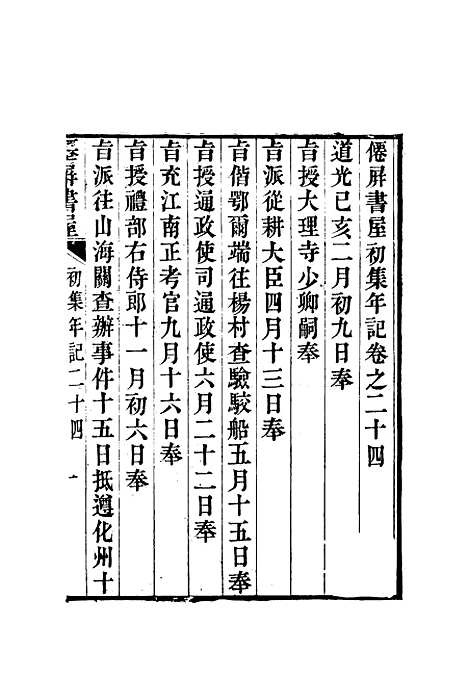 僊屛書屋初集年記卷之二十四
道光己亥二月初九日奉
旨授大理寺少卿嗣奉
旨派從耕大臣四月十三日奉
旨偕鄂爾端往楊村查驗駁船五月十五日奉
旨授通政使司通政使六月二十二日奉
旨充江南正考官九月十六日奉
旨授禮部右侍郎十一月初六日奉
旨派往山海關查辦事件十五日抵遵化州十
僊屛書屋 初集年記二十四 一